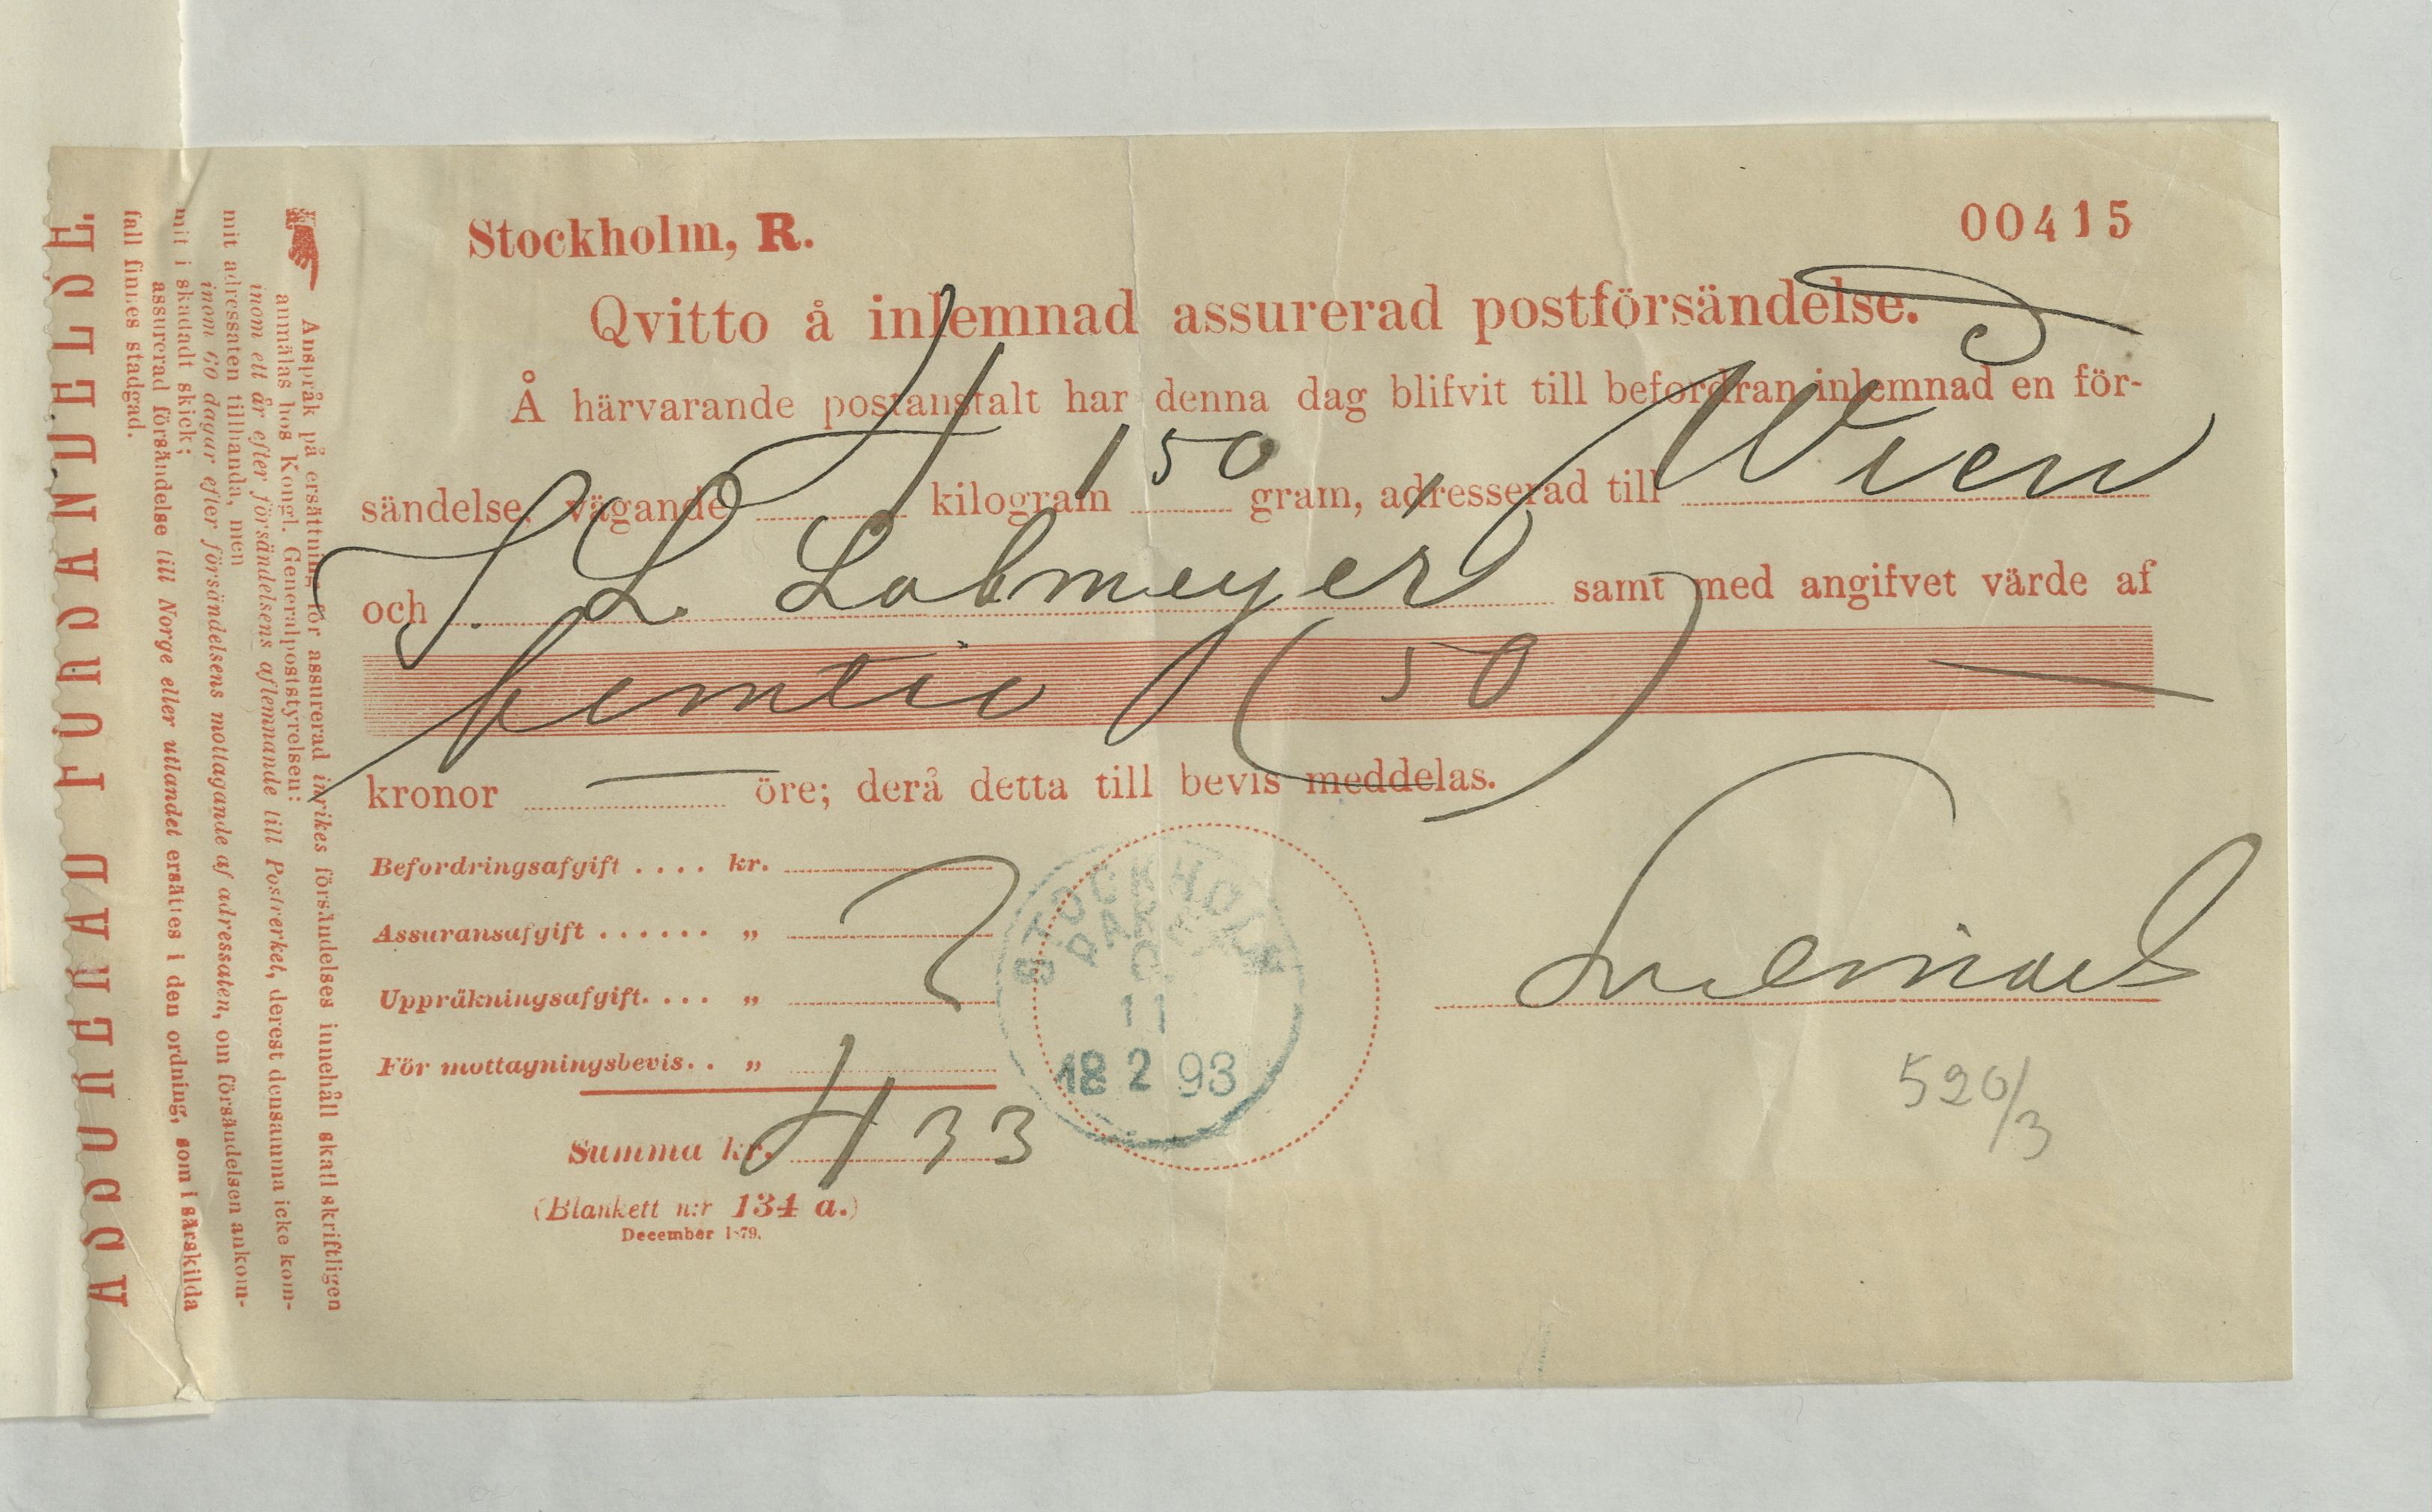 Stockholm, R.
00415
Qvitto å inlemnad assurerad postförsändelse.
Å härvarande postanstalt har denna dag blifvit till befordran inlemnad en för-
sändelse, vägande 4 kilogram 150 gram, adresserad till Wien
och J. L. Lobmeyer samt med angifvet värde af
femtio (50) —
kronor — öre; derå detta till bevis meddelas.
Befordringsafgift . . . . kr.
Assuransafgift . . . . . . „
Uppräkningsafgift. . . . „
För mottagningsbevis. . „
Summa kr. 4 33
(Blankett n:r 134 a.)
December 1879.
STOCKHOLM
PAKET
11
18 2 93
520/3
Anspråk på ersättning för assurerad inrikes försändelses innehåll skall skriftligen
anmälas hos Kongl. Generalpoststyrelsen:
inom ett år efter försändelsens aflemnande till Postverket, derest densamma icke kom-
mit adressaten tillhanda, men
inom 60 dagar efter försändelsens mottagande af adressaten, om försändelsen ankom-
mit i skadadt skick;
assurerad försändelse till Norge eller utlandet ersättes i den ordning, som i särskilda
fall finnes stadgad.
ASSURERAD FÖRSÄNDELSE.